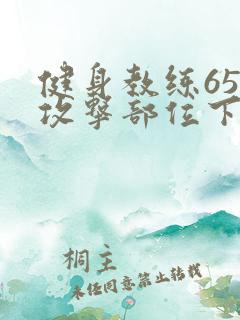 健身教练65
攻擊部位下
桐主
未经同意禁止转载